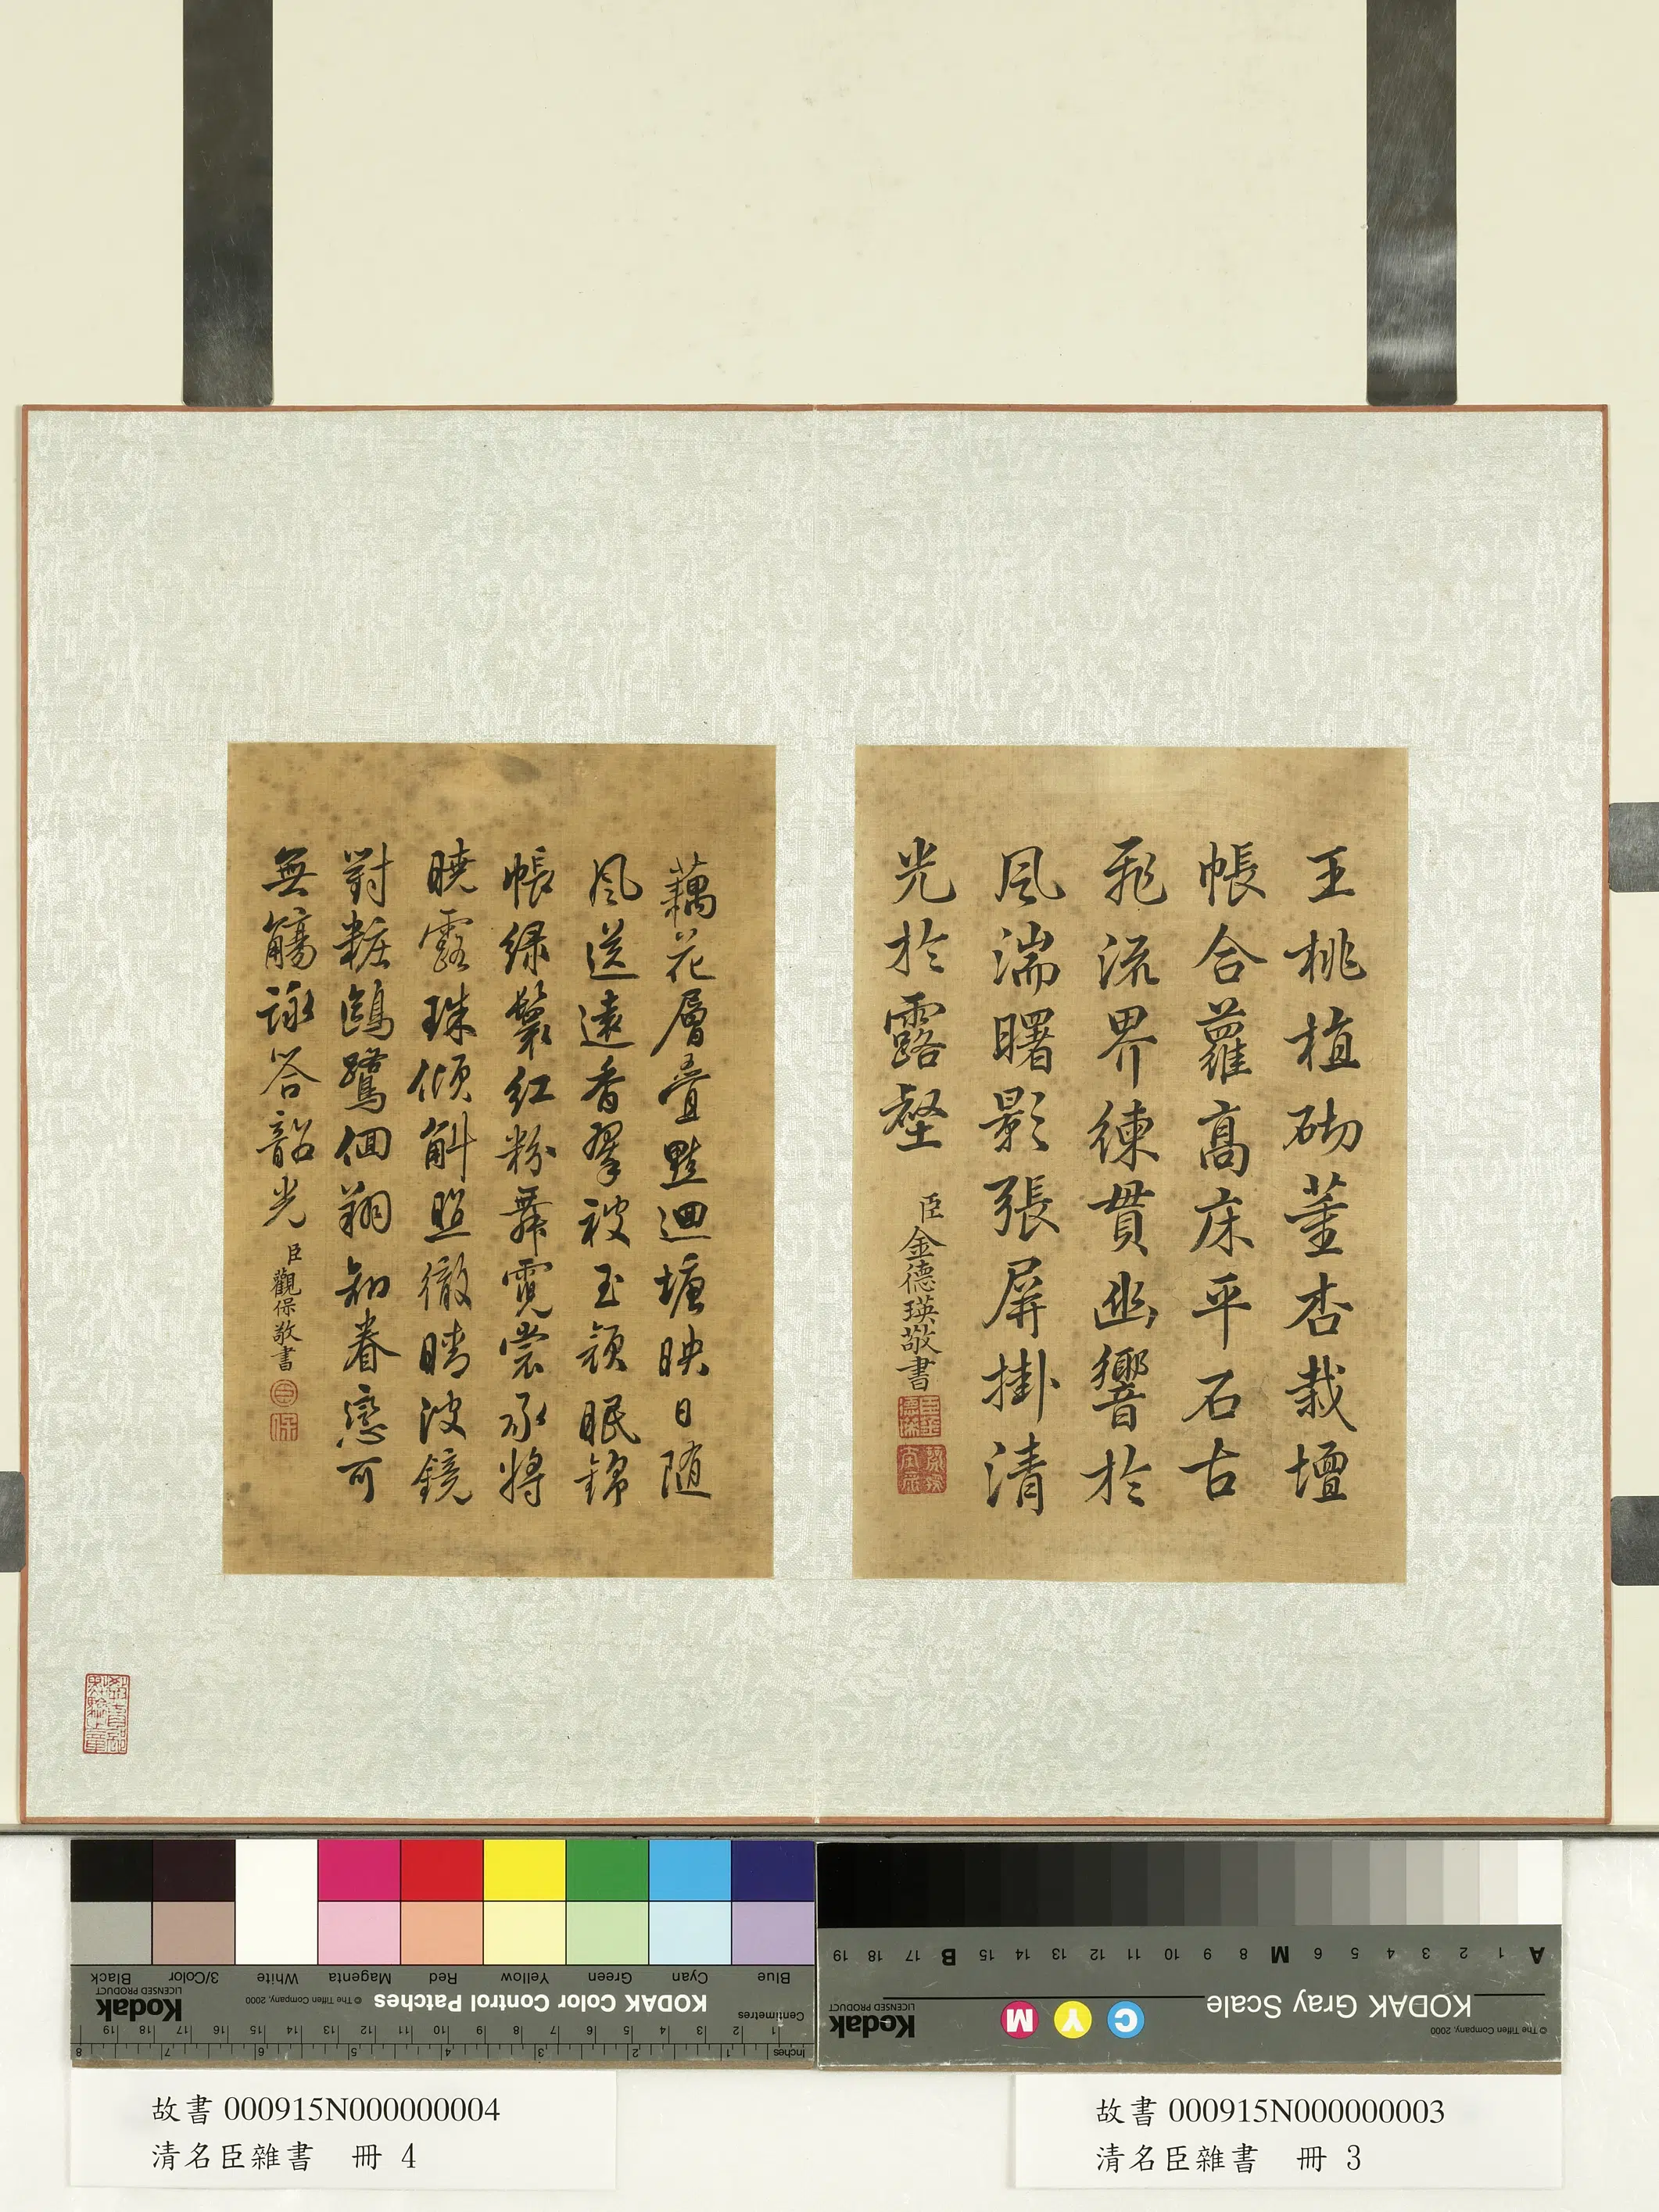 王桃植砌董杏栽壇
帳合蘿高床平石古
飛流界練貫幽響於
風湍曙影張屏掛清
光於露壑
臣金德瑛敬書
藕花層疊點迴塘映日隨
風送遠香翠被玉頹眠錦
帳綠鬟紅粉舞霓裳承將
曉露珠傾斛照徹晴波鏡
對粧鷗鷺徊翔知眷戀可
無觴詠答韶光
臣觀保敬書
Blue Cyan Green Yellow Red Magenta White 3/Color Black
KODAK Color Control Patches
© The Tiffen Company, 2000
Kodak
LICENSED PRODUCT
Centimetres
1 2 3 4 5 6 7 8 9 10 11 12 13 14 15 16 17 18 19
Inches
1 2 3 4 5 6 7 8
A 1 2 3 4 5 6 M 8 9 10 11 12 13 14 15 B 17 18 19
KODAK Gray Scale
C Y M
Kodak
LICENSED PRODUCT
© The Tiffen Company, 2000
故書 000915N000000003
清名臣雜書 冊 3
故書 000915N000000004
清名臣雜書 冊 4